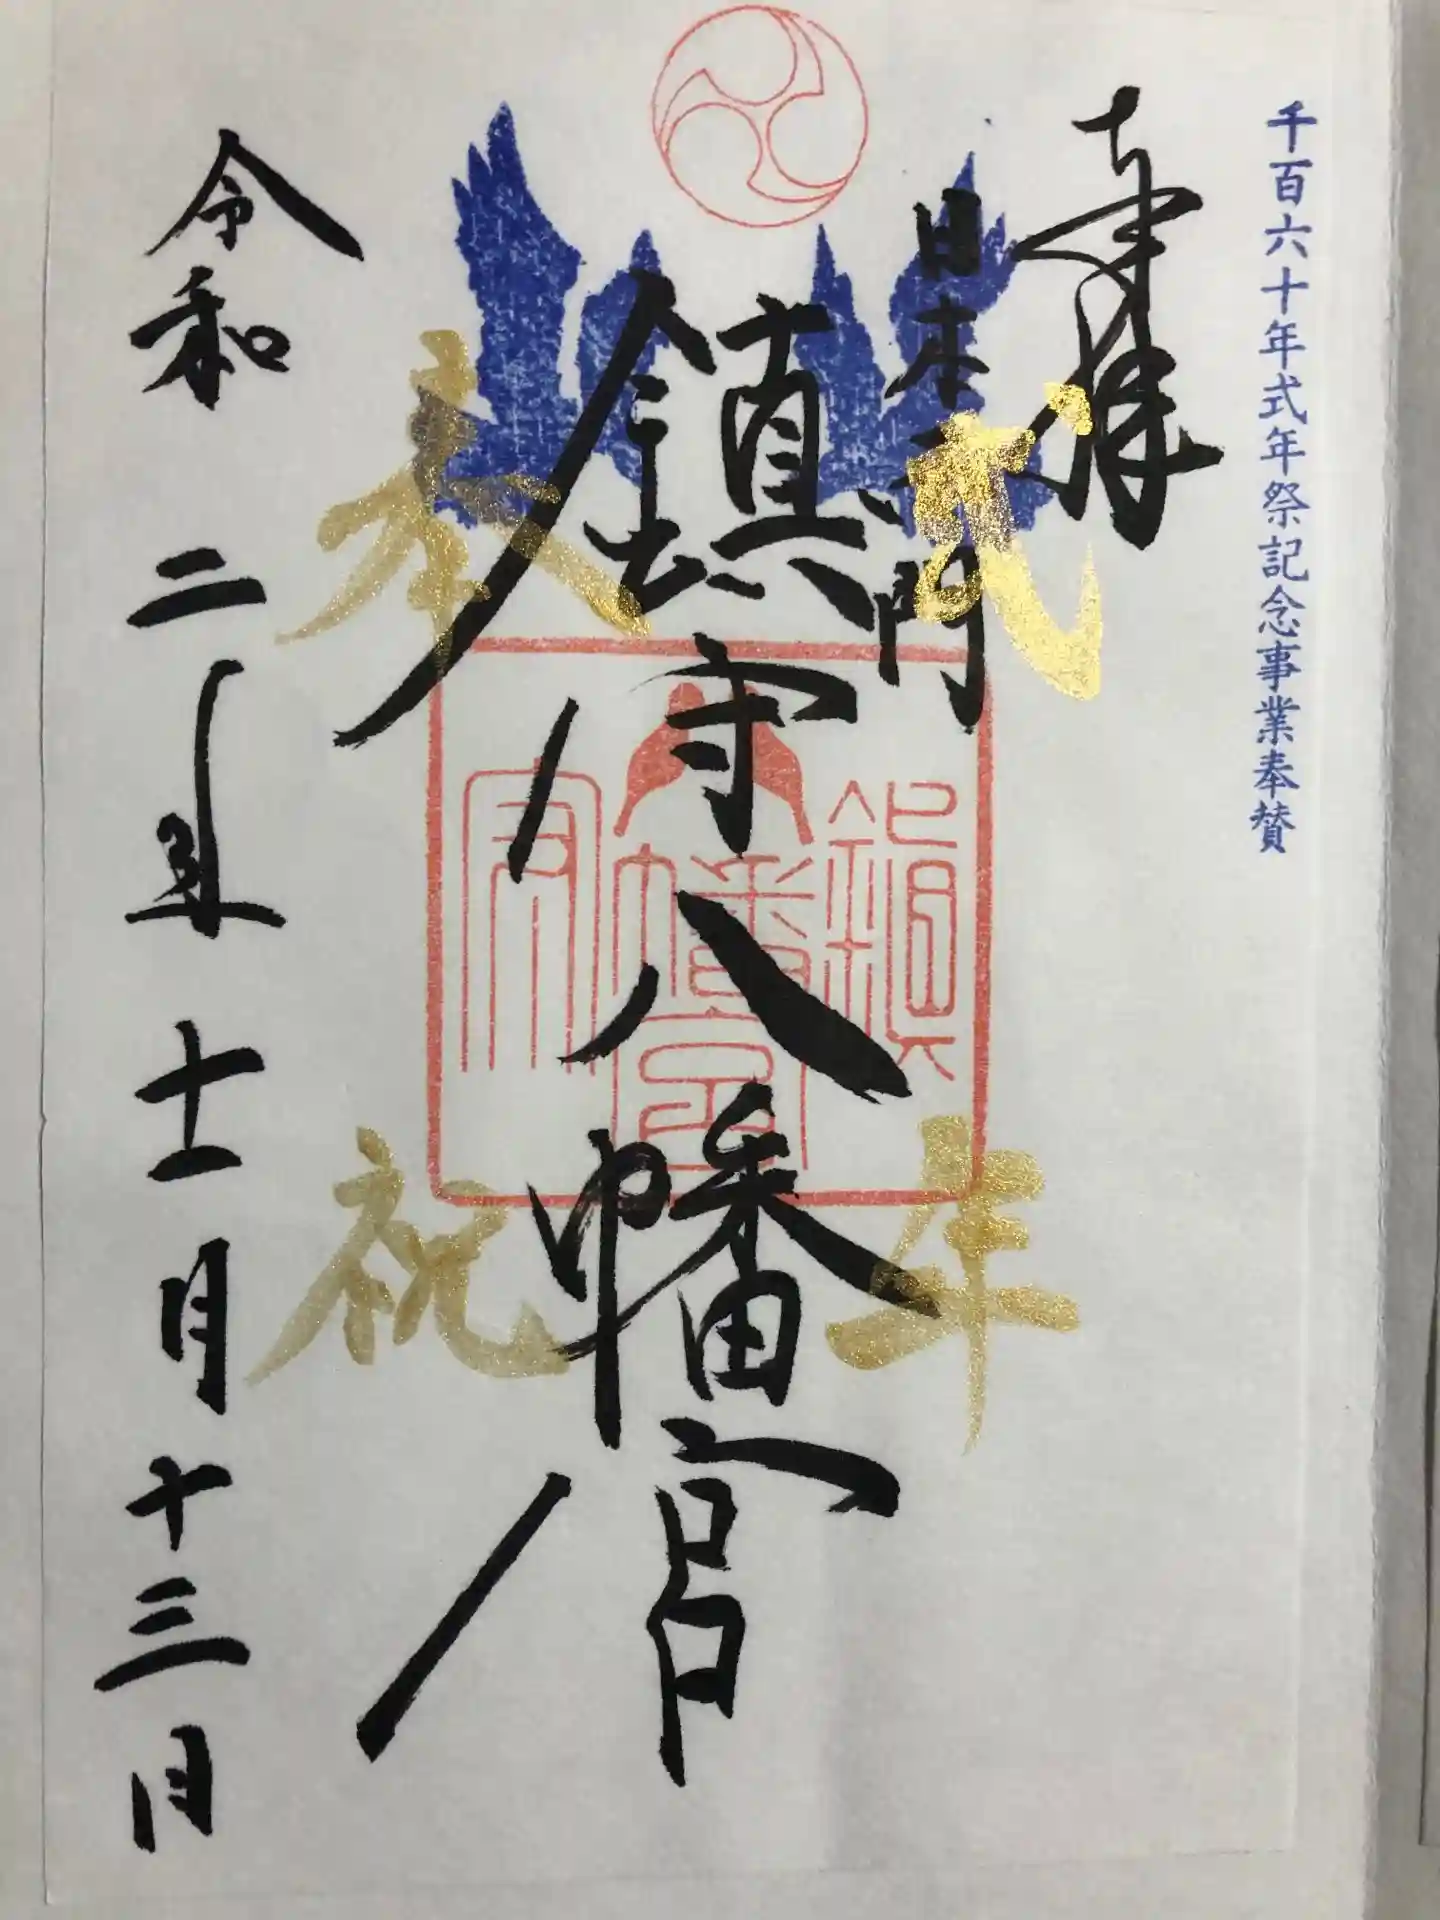 千百六十年式年祭記念事業奉賛
奉拝
日本 門
鎮守八幡宮
式年
奉祝
令和二年十一月十三日